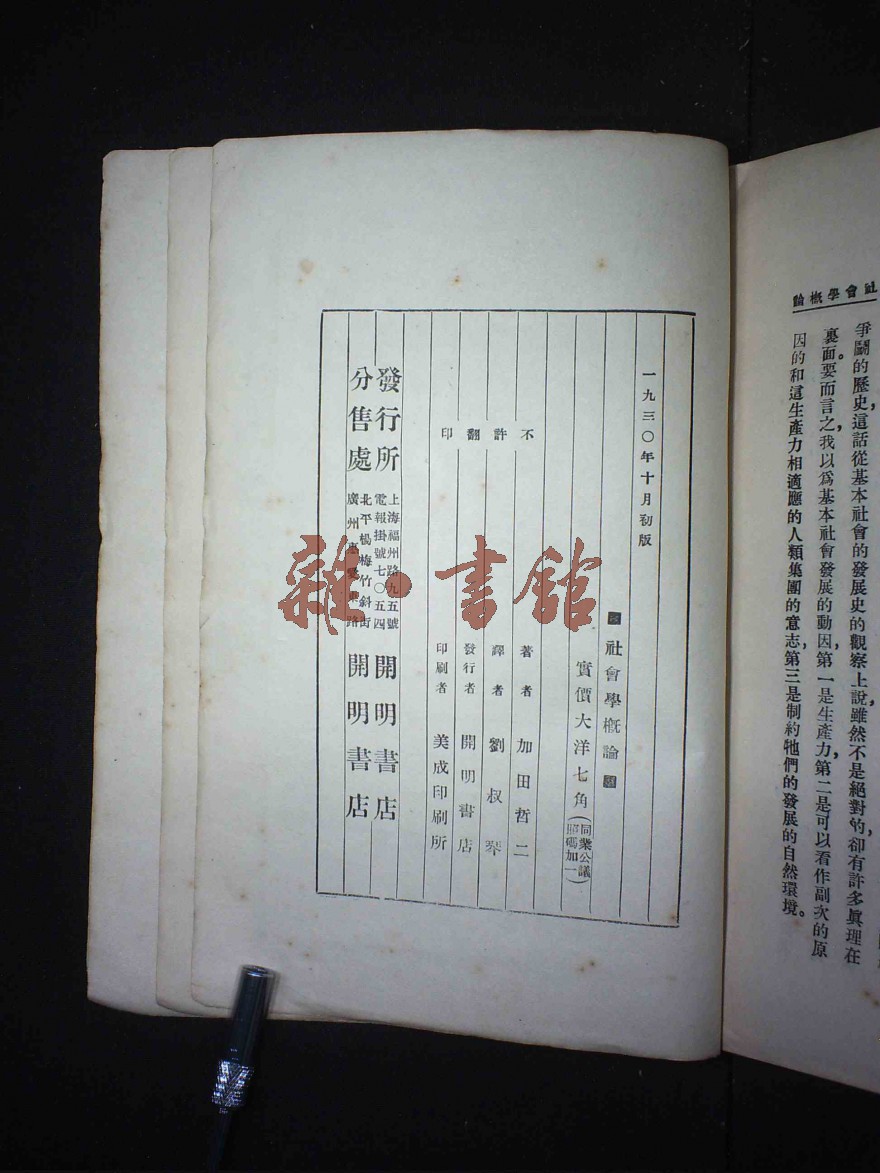 社會學概論
爭鬭的歷史，這話從基本社會的發展史的觀察上說，雖然不是絕對的，卻有許多眞理在
裏面。要而言之，我以爲基本社會發展的動因，第一是生產力，第二是可以看作副次的原
因的和這生產力相適應的人類集團的意志，第三是制約牠們的發展的自然環境。
一九三〇年十月初版
社會學概論
實價大洋七角（同業公議照碼加一）
不許翻印
著者 加田哲二
譯者 劉叔琴
發行者 開明書店
印刷者 美成印刷所
發行所 上海福州路九五號 電報掛號七〇五四 開明書店
分售處 北平楊梅竹斜街 廣州惠愛 路 開明書店
雜·書館